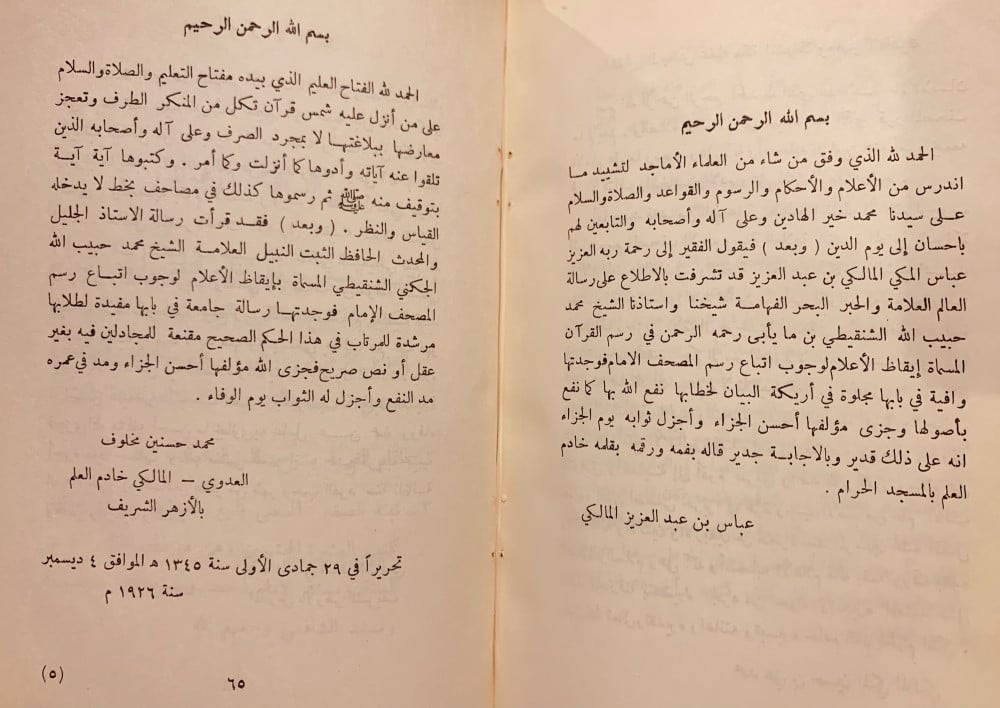 بسم الله الرحمن الرحيم
الحمد لله الذي وفق من شاء من العلماء الأماجد لتشييد مـا
اندرس من الأعلام والأحكام والرسوم والقواعد والصلاة والسلام
عـلى سيدنا محمد خير الهادين وعلى آله وأصحابه والتابعين لهم
باحسان إلى يوم الدين ( وبعد ) فيقول الفقير إلى رحمة ربه العزيز
عباس المكي المالكي بن عبد العزيز قد تشرفت بالاطلاع على رسالة
العالم العلامة والحبر البحر الفهامـة شيخنا واستاذنا الشيخ محمد
حبيب الله الشنقيطي بن ما يأبى رحمه الرحمن في رسم القرآن
المسماة إيقاظ الأعلام لوجوب اتباع رسم المصحف الامام فوجدتها
وافية في بابها مجلوة في أريكة البيان لخطابها نفع الله بها كما نفع
بأصولها وجزى مؤلفها أحسن الجزاء وأجزل ثوابه يوم الجزاء
انه على ذلك قدير وبالاجابـة جدير قاله بفمه ورقمه بقلمه خادم
العلم بالمسجد الحرام .
عباس بن عبد العزيز المالكي
بسم الله الرحمن الرحيم
الحمد لله الفتاح العليم الذي بيده مفتاح التعليم والصلاة والسلام
على من أنزل عليه شمس قرآن تكل من المنكر الطرف وتعجز
معارضها ببلاغتهـا لا بمجرد الصرف وعلى آله وأصحابه الذين
تلقوا عنه آياته وأدوها كما أنزلت وكما أمر . وكتبوها آية آيـة
بتوقيف منه ﷺ ثم رسموها كذلك في مصاحف بخط لا يدخله
القياس والنظر . ( وبعد ) فقـد قرأت رسالة الاستاذ الجليل
والمحدث الحافظ الثبت النبيل العلامـة الشيخ محمد حبيب الله
الجكني الشنقيطي المسماة بإيقاظ الأعلام لوجوب اتبـاع رسم
المصحف الإمام فوجدتهـا رسالة جامعة في بابها مفيدة لطلابها
مرشدة للمرتاب في هذا الحكم الصحيح مقنعة للمجادلين فيه بغير
عقل أو نص صريح فجزى الله مؤلفها أحسن الجزاء ومد في عمره
مد النفع وأجزل له الثواب يوم الوفاء .
محمد حسنين مخلوف
العدوي – المالكي خادم العلم
بالأزهر الشريف
تحريراً في ٢٩ جمادى الأولى سنة ١٣٤٥ ه الموافق ٤ ديسمبر
سنة ١٩٢٦ م
٦٥
(٥)